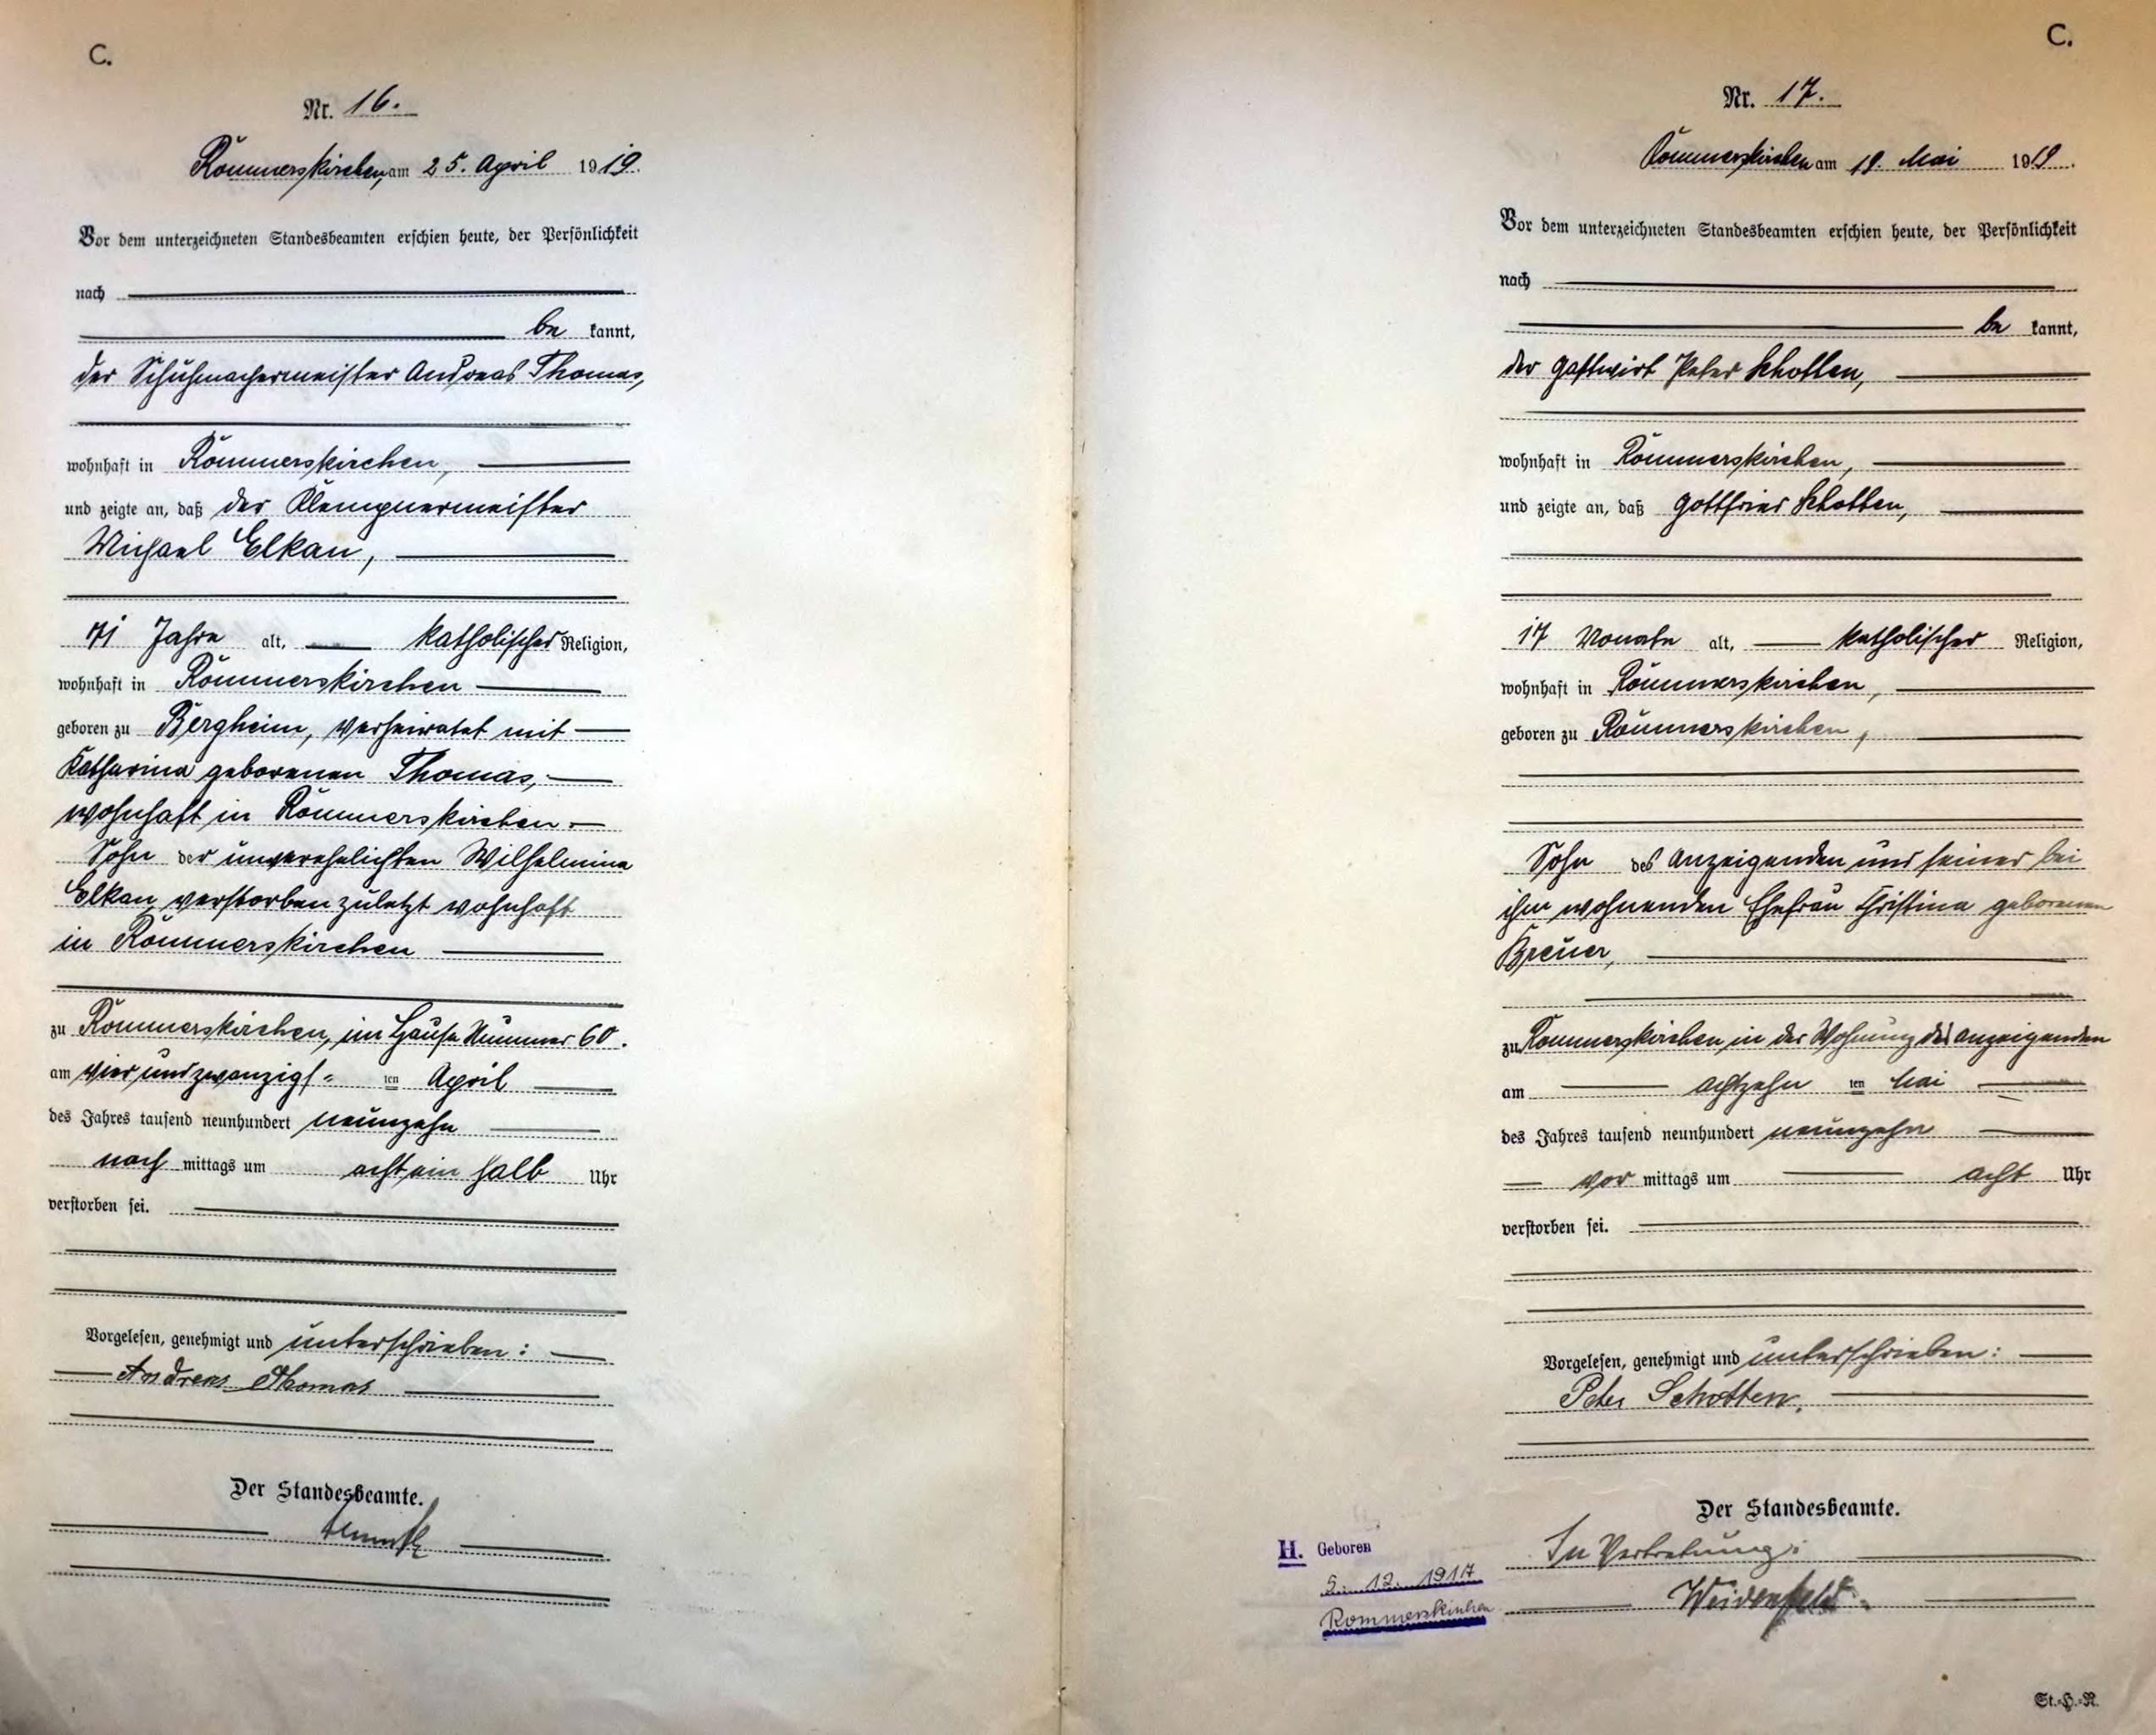 C.
Nr. 16.
Rommerskirchen, am 25. April 1919.
Vor dem unterzeichneten Standesbeamten erschien heute, der Persönlichkeit
nach
be kannt,
der Schuhmachermeister Andreas Thomas,
wohnhaft in Rommerskirchen,
und zeigte an, daß der Klempnermeister
Michael Elkan,
71 Jahre alt, katholischer Religion,
wohnhaft in Rommerskirchen
geboren zu Bergheim, verheiratet mit
Katharina geborenen Thomas,
wohnhaft in Rommerskirchen
Sohn der unverehelichten Wilhelmina
Elkan verstorben zuletzt wohnhaft
in Rommerskirchen
zu Rommerskirchen, im Hause Nummer 60.
am vierundzwanzigs= ten April
des Jahres tausend neunhundert neunzehn
nach mittags um acht ein halb Uhr
verstorben sei.
Vorgelesen, genehmigt und unterschrieben:
Andreas Thomas
Der Standesbeamte.
C.
Nr. 17.
Rommerskirchen am 19. Mai 1919.
Vor dem unterzeichneten Standesbeamten erschien heute, der Persönlichkeit
nach
be kannt,
der Gastwirt Peter Schotten,
wohnhaft in Rommerskirchen,
und zeigte an, daß Gottfried Schotten,
17 Monate alt, katholischer Religion,
wohnhaft in Rommerskirchen,
geboren zu Rommerskirchen,
Sohn des Anzeigenden und seiner bei
ihm wohnenden Ehefrau Christina geborenen
Breuer,
zu Rommerskirchen in der Wohnung des Anzeigenden
am achtzehn ten Mai
des Jahres tausend neunhundert neunzehn
vor mittags um acht Uhr
verstorben sei.
Vorgelesen, genehmigt und unterschrieben:
Peter Schotten.
Der Standesbeamte.
In Vertretung:
Weidenfeld
H. Geboren
5. 12. 1917
Rommerskirchen
St.=H.=R.